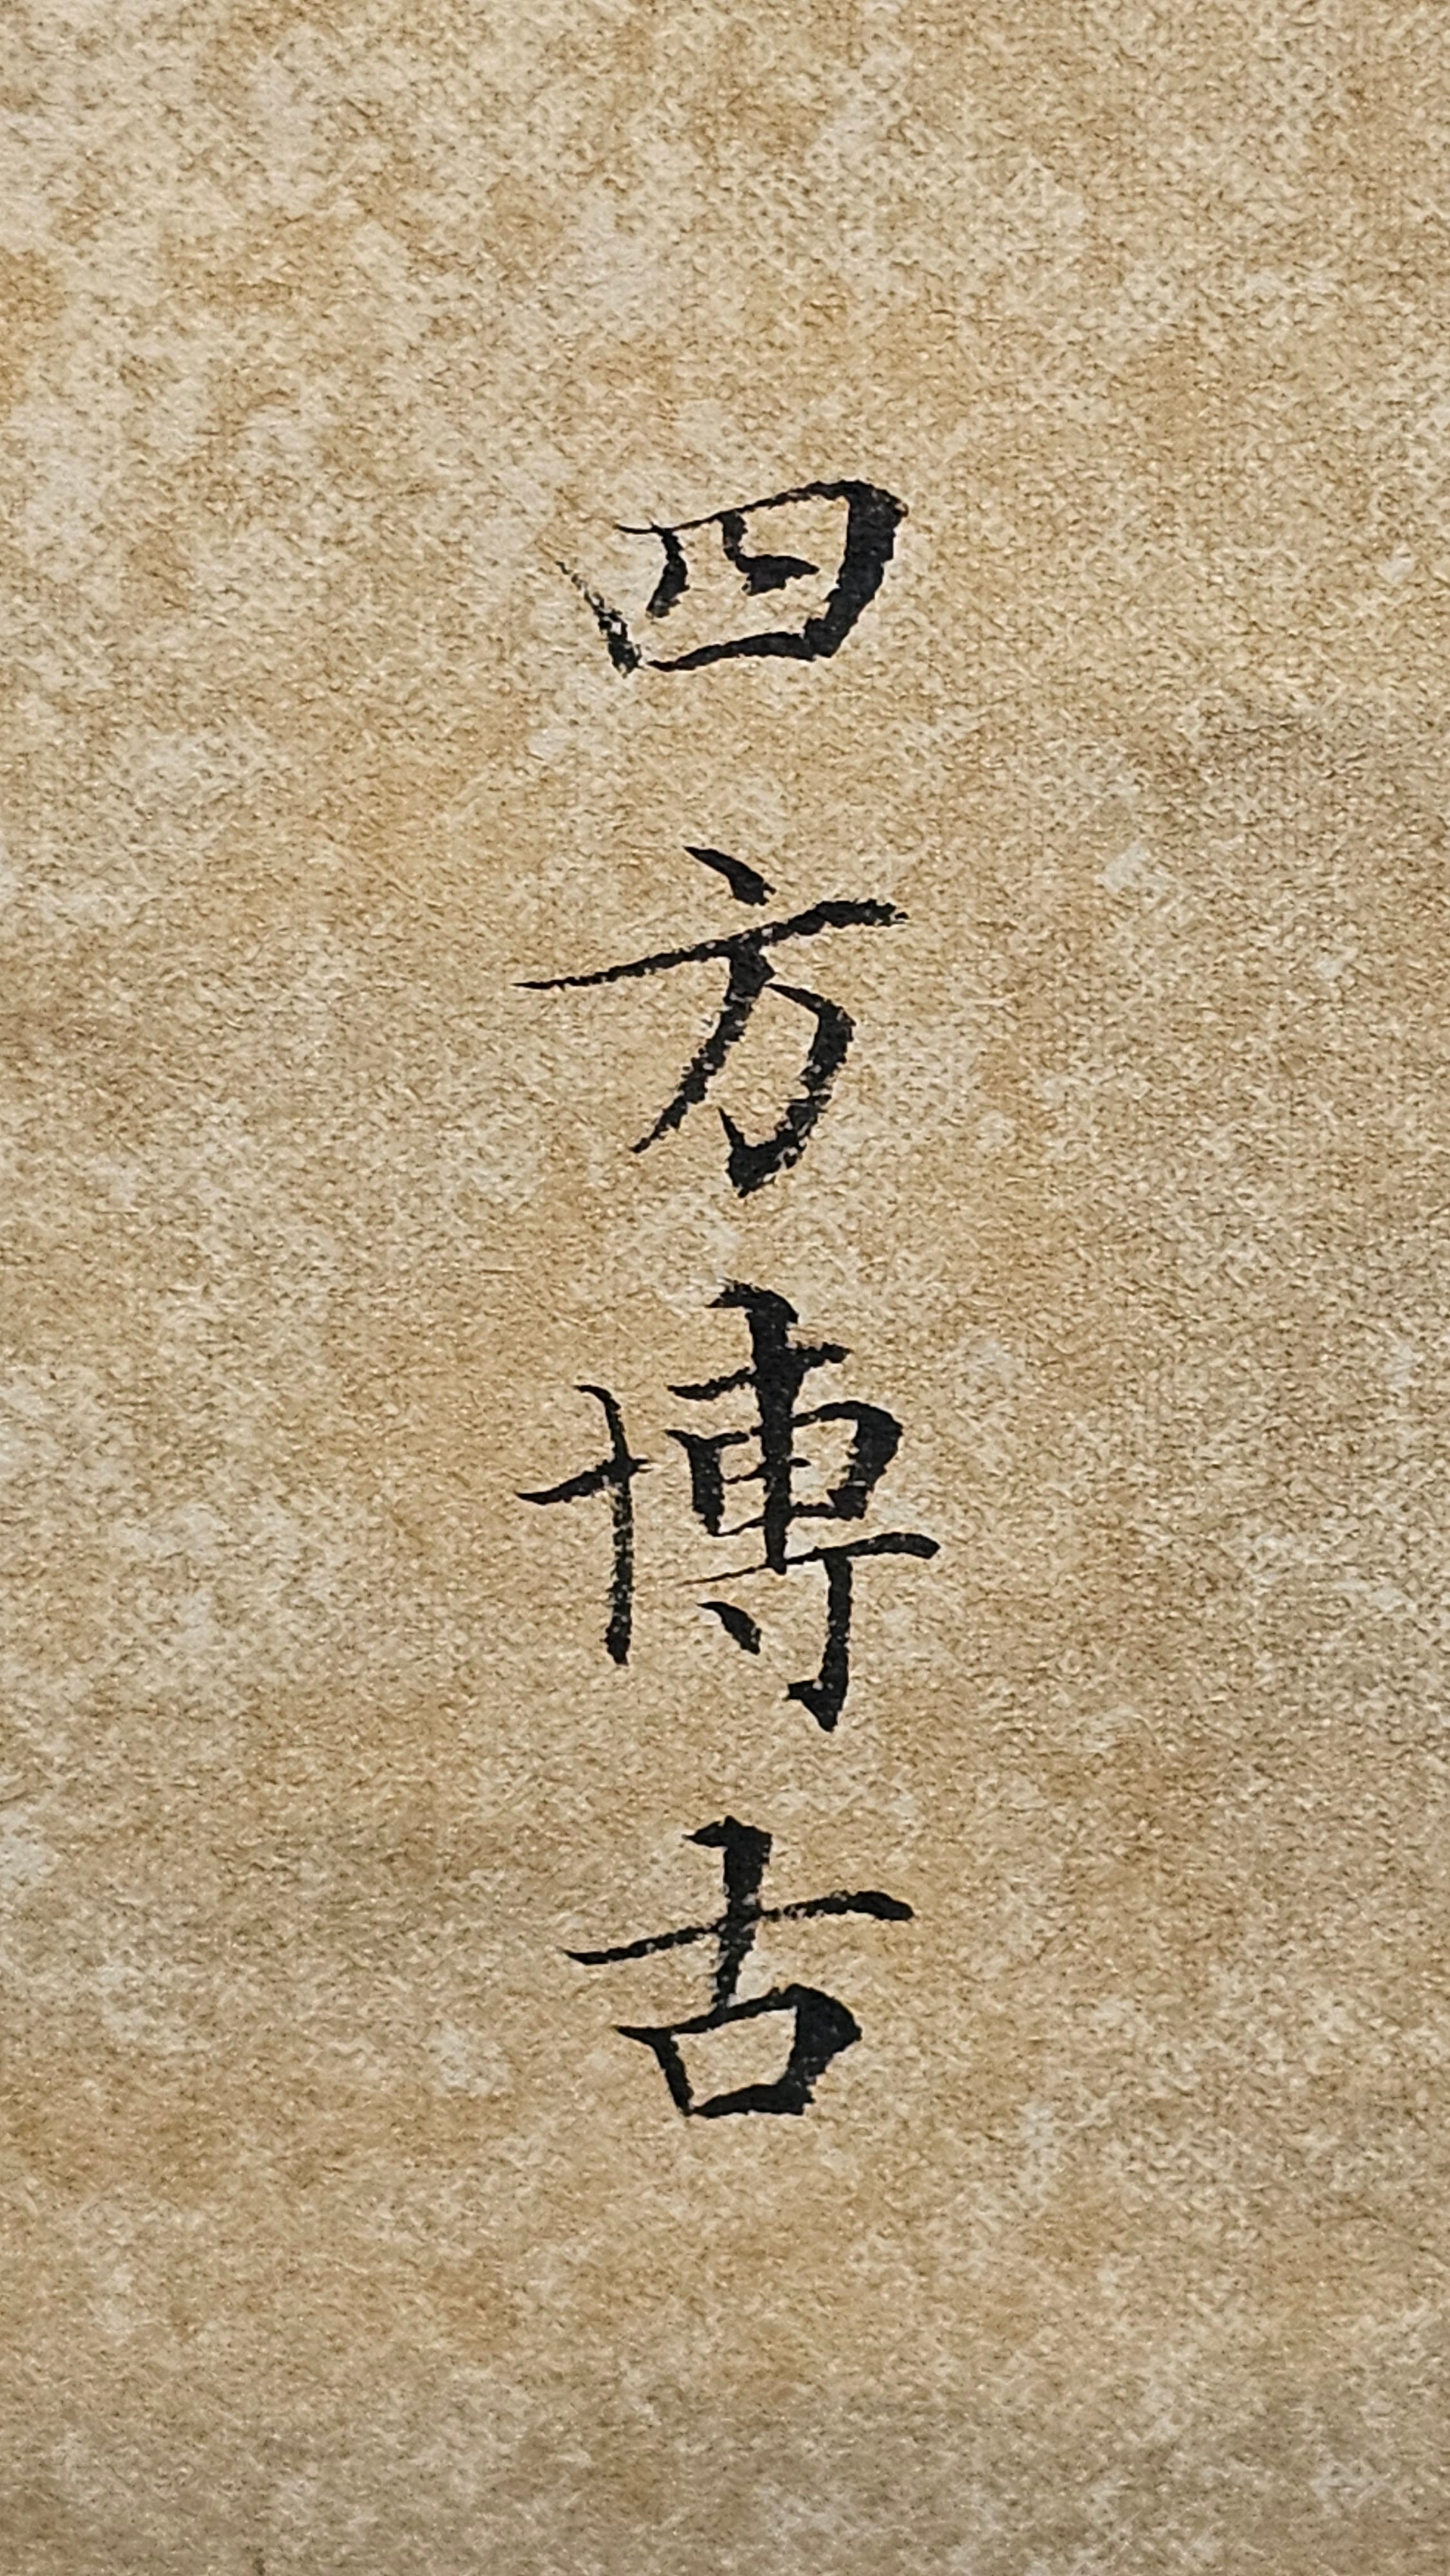 四方博古